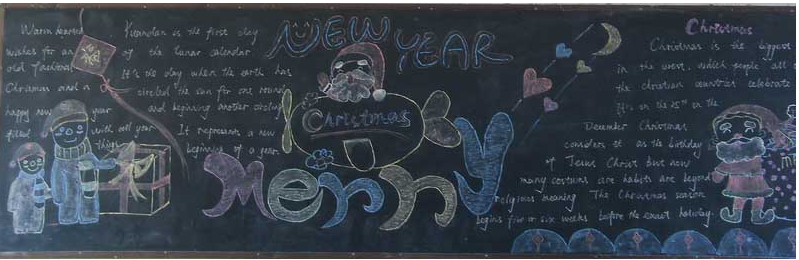 Warm hearted
wishes for an
old fashion
Christmas and a
happy new year
filled with all your
things
Yuandan is the first day
of the lunar calendar
It's the day when the earth has
circled the sun for one round
and beginning another circling
It represents a new
beginning of a year.
NEW YEAR
Christmas
Merry
Christmas
Christmas is the biggest
in the west, which people all
the christian countries celebrate
It's on the 25th on the
December Christmas
considers it as the birthday
of Jesus Christ but now
many costums are habits are beyond
religious meaning The Christmas season
begins five or six weeks before the exact holiday.